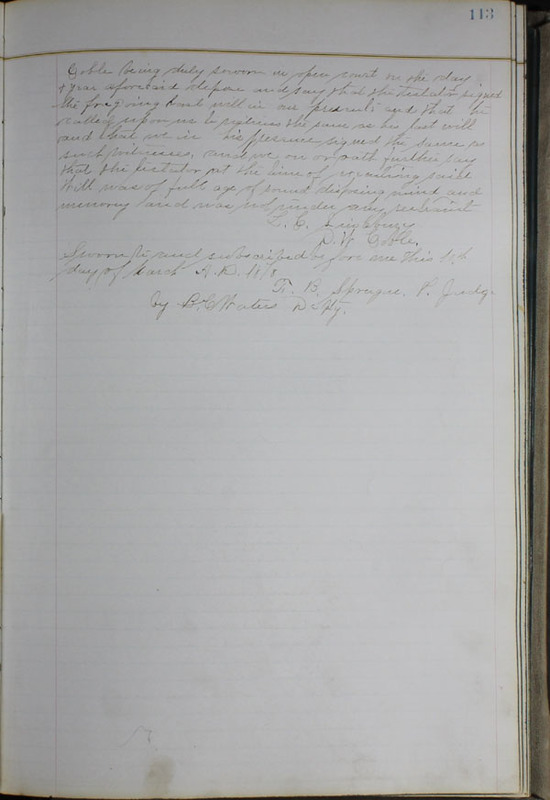 113
Coble being duly sworn in open court on the day
& year aforesaid depose and say that the testator signed
the foregoing will in our presents and that he
called upon us to witness the same as his last will
and that we in his presence signed the same as
such witnesses, and we on our oath further say
that the testator at the time of executing said
Will was of full age of sound disposing mind and
memory and was not under any restraint
L. C.
D. W. Coble.
Sworn to and subscribed before me this
day of March A.D.
B. Sprague. P. Judg.
by Waters Dpty.